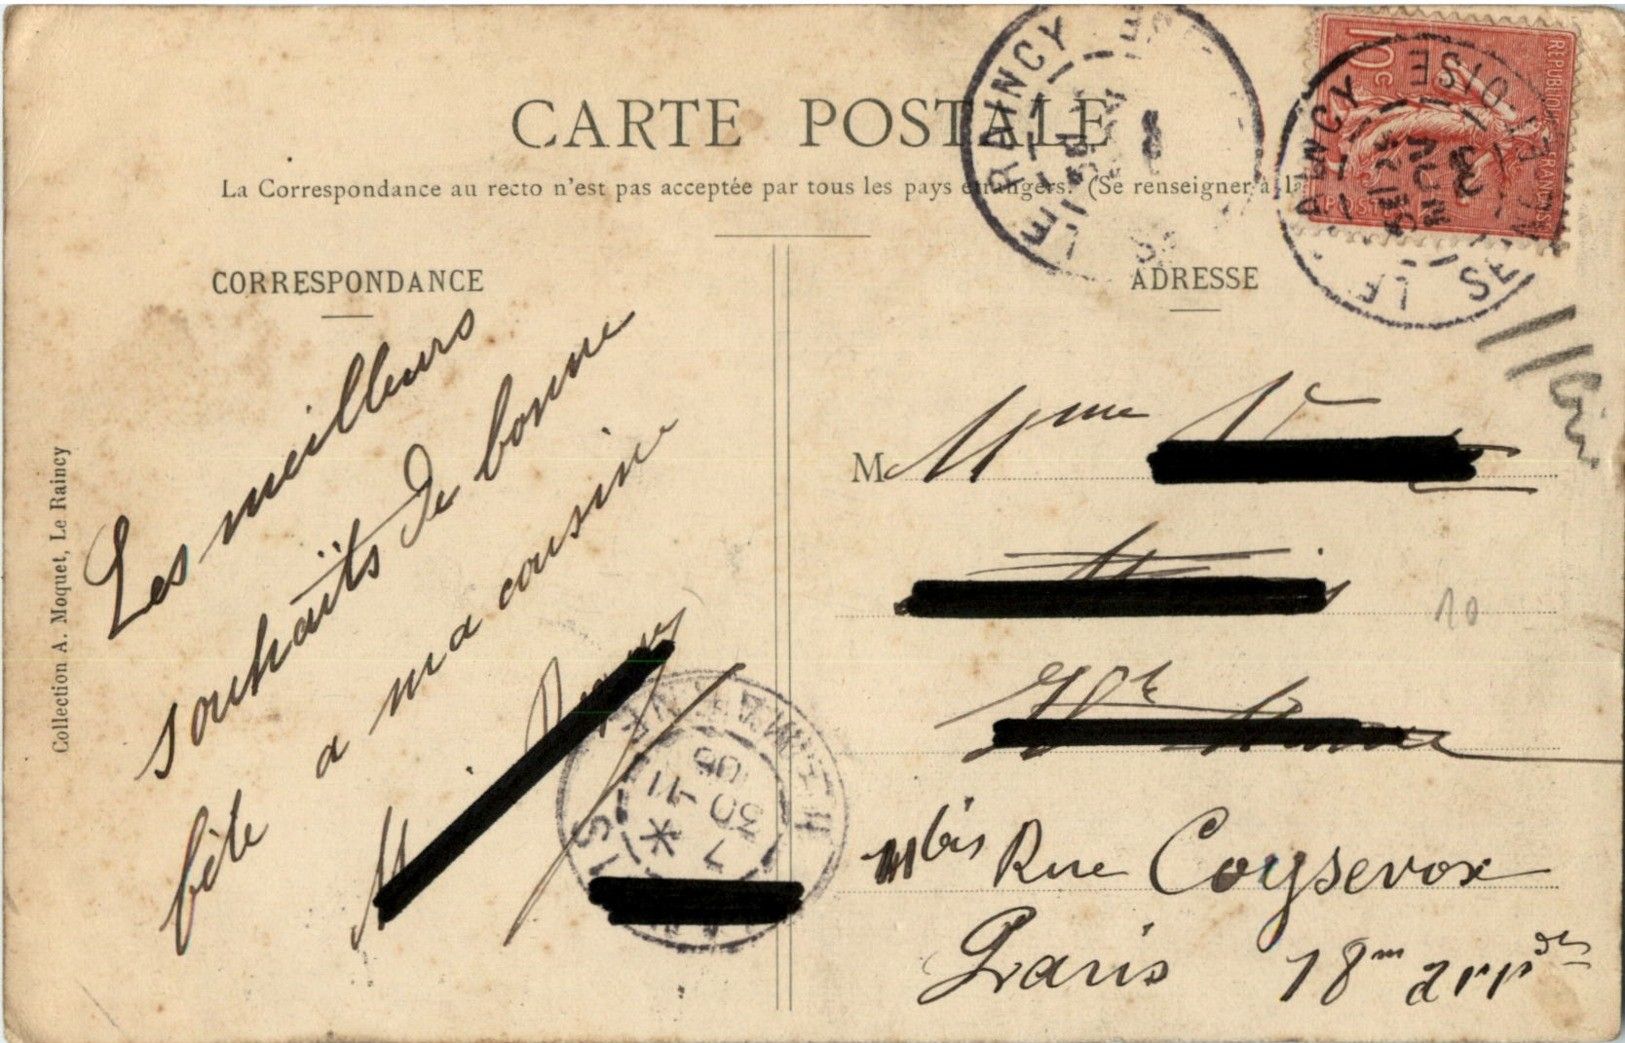 CARTE POSTALE
La Correspondance au recto n'est pas acceptée par tous les pays étrangers. (Se renseigner à la
CORRESPONDANCE
ADRESSE
Les meilleurs
souhaits de bonne
fête a ma cousine
M
Mme
bis Rue Coysevox
Paris 18me arrpdt
Collection A. Moquet, Le Raincy
LE RAINCY
LE RAINCY
SEINE-ET-OISE
10c
REPUBLIQUE FRANÇAISE
POSTES
7 *
30 -11
05
10